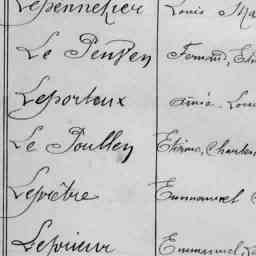 Lepennetier Louis Ma
Le Penven Fernand, Eti
Leporteux Aimé, Loui
Le Poullen Etienne, Charles
Leprêtre Emmanuel
Leprieur Emmanuel, L